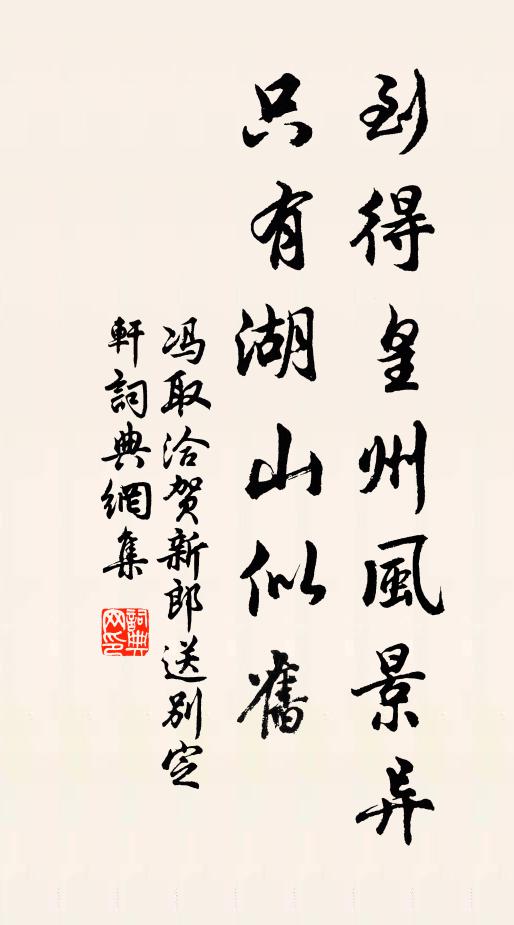 到得皇州風景异
只有湖山似舊
冯取洽贺新郎送别定
軒詞典網集
詞典網印